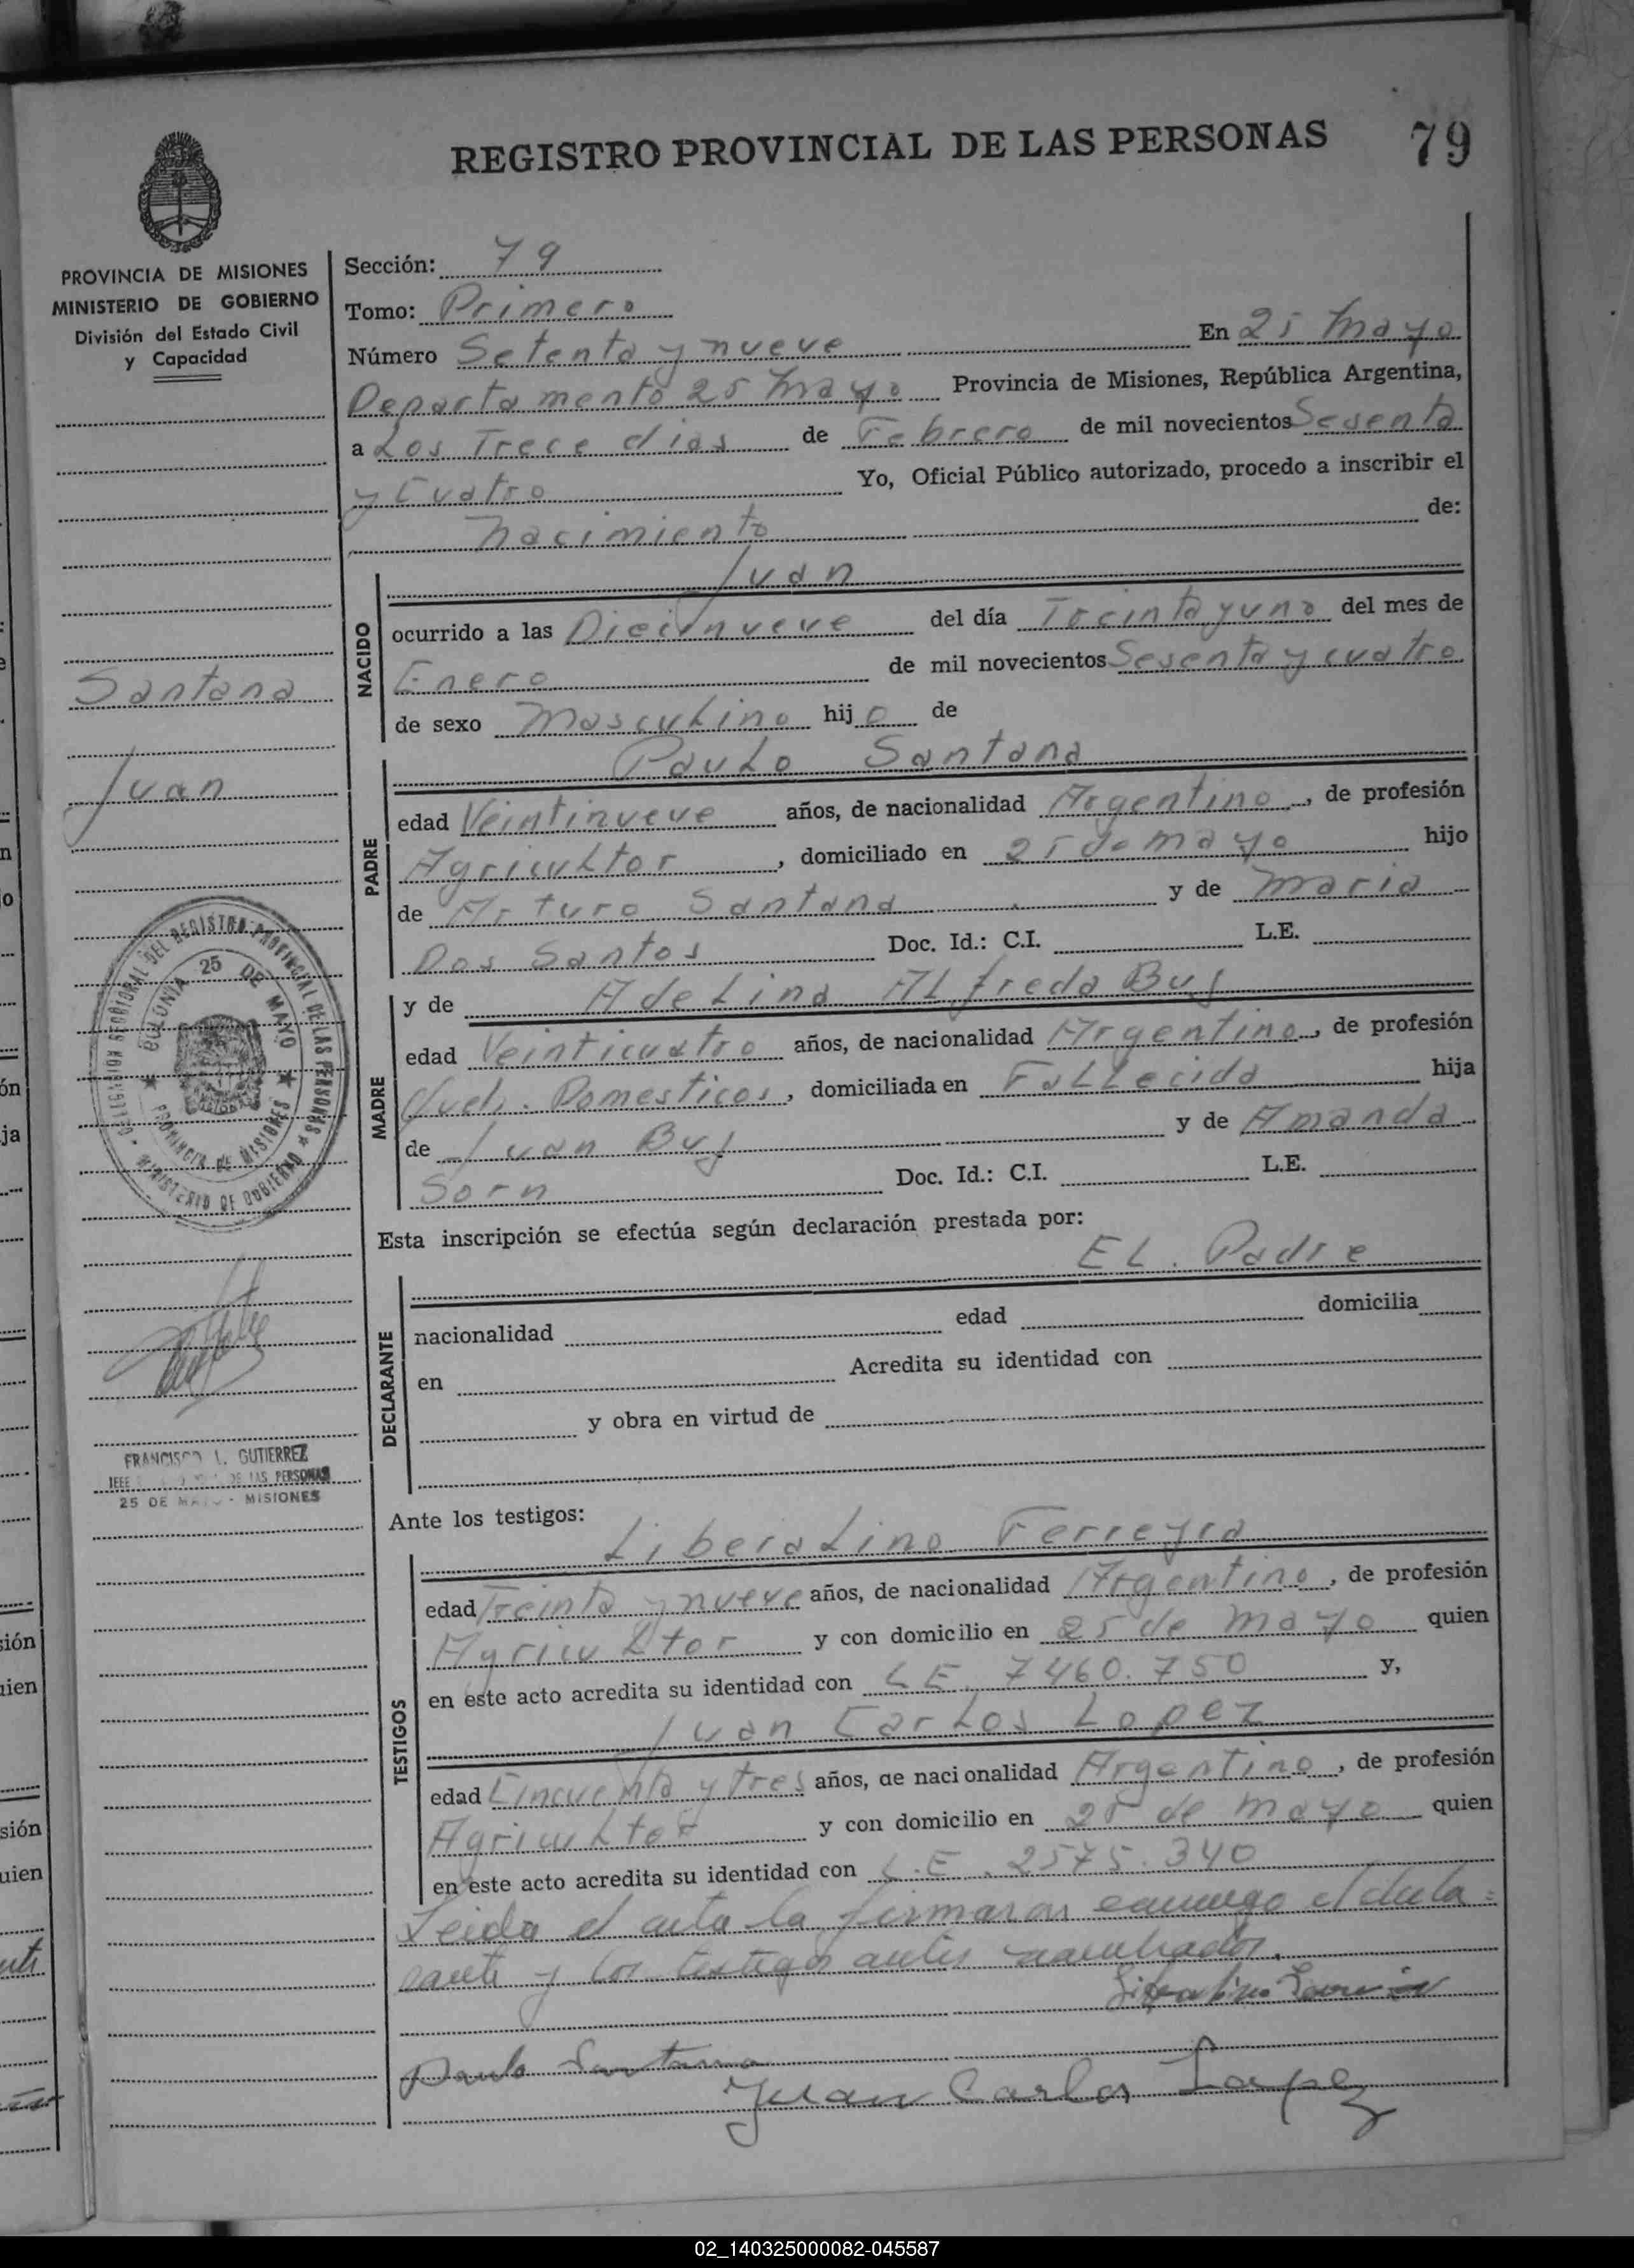 REGISTRO PROVINCIAL DE LAS PERSONAS 79
PROVINCIA DE MISIONES
MINISTERIO DE GOBIERNO
División del Estado Civil
y Capacidad
Santana
Juan
DELEGACION SECCIONAL DEL REGISTRO PROVINCIAL DE LAS PERSONAS
MINISTERIO DE GOBIERNO
COLONIA 25 DE MAYO
PROVINCIA DE MISIONES
FRANCISCO L. GUTIERREZ
JEFE DE LAS PERSONAS
25 DE MAYO - MISIONES
Sección: 79
Tomo: Primero
Número Setenta y nueve En 25 Mayo
Departamento 25 Mayo Provincia de Misiones, República Argentina,
a Los Trece dias de Febrero de mil novecientos Sesenta
y Cuatro Yo, Oficial Público autorizado, procedo a inscribir el
Nacimiento de:
NACIDO
Juan
ocurrido a las Diecinueve del día Treinta y uno del mes de
Enero de mil novecientos Sesenta y cuatro
de sexo Masculino hijo de
PADRE
Paulo Santana
edad Veintinueve años, de nacionalidad Argentino, de profesión
Agricultor, domiciliado en 25 de Mayo hijo
de Arturo Santana y de Maria
Dos Santos Doc. Id.: C.I. L.E.
MADRE
y de Adelina Alfreda Buj
edad Veinticuatro años, de nacionalidad Argentina, de profesión
Domesticos, domiciliada en Fallecida hija
de Juan Buj y de Amanda
Sorn Doc. Id.: C.I. L.E.
Esta inscripción se efectúa según declaración prestada por:
DECLARANTE
EL Padre
nacionalidad edad domicilia
en Acredita su identidad con
y obra en virtud de
Ante los testigos:
TESTIGOS
Liberalino Ferreyra
edad Treinta y nueve años, de nacionalidad Argentino, de profesión
Agricultor y con domicilio en 25 de Mayo quien
en este acto acredita su identidad con L.E. 7460.750 y,
Juan Carlos Lopez
edad Cincuenta y tres años, de nacionalidad Argentino, de profesión
Agricultor y con domicilio en 25 de Mayo quien
en este acto acredita su identidad con L.E. 2575.340
Leida el acta la firmaron conmigo el decla=
rante y los testigos antes nombrados.
Paulo Santana
Juan Carlos Lopez
02_140325000082-045587